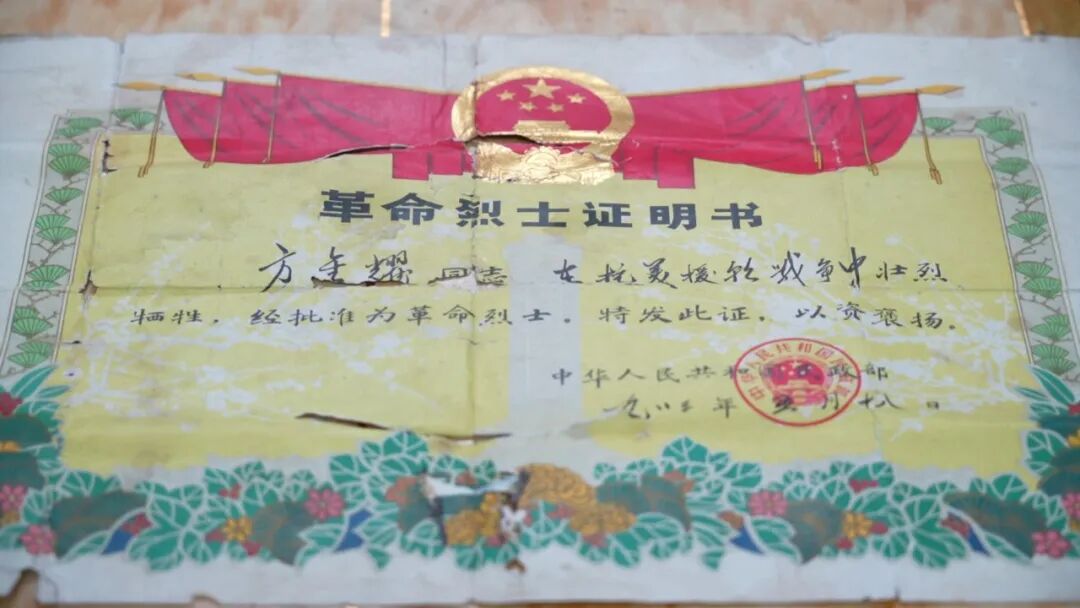 革命烈士证明书
方金耀同志 在抗美援朝战争中壮烈
牺牲，经批准为革命烈士。特发此证，以资褒扬。
中华人民共和国民政部
一九八三年 月十八日